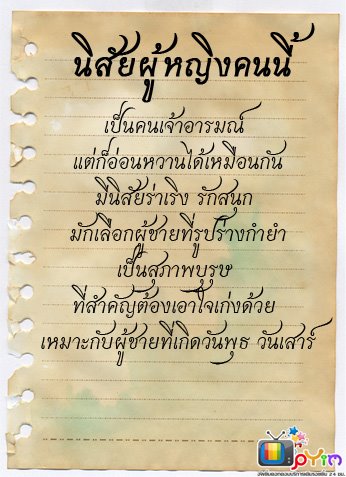 นิสัยผู้หญิงคนนี้
เป็นคนเจ้าอารมณ์
แต่ก็อ่อนหวานได้เหมือนกัน
มีนิสัยร่าเริง รักสนุก
มักเลือกผู้ชายที่รูปร่างกำยำ
เป็นสุภาพบุรุษ
ที่สำคัญต้องเอาใจเก่งด้วย
เหมาะกับผู้ชายที่เกิดวันพุธ วันเสาร์
24 ชม.